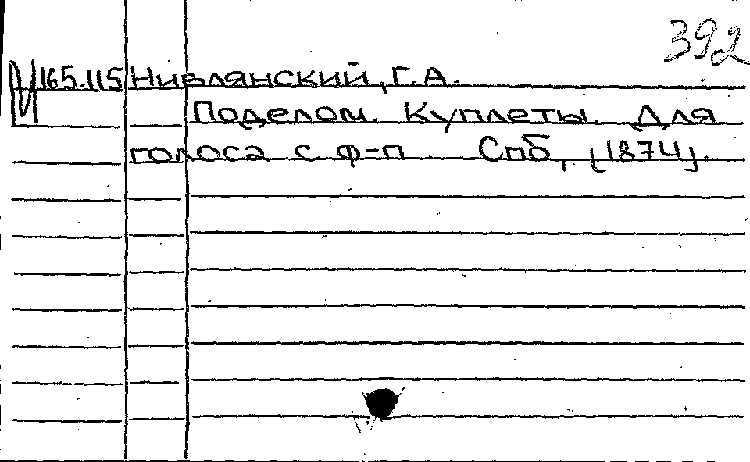 392
М 165.115 Нивлянский, Г.А.
Поделом. Куплеты. Для
голоса с ф-п Спб, [1874].